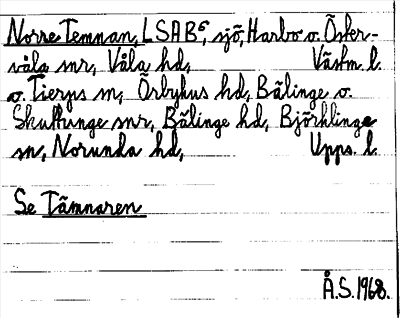 Norre Temnan, LSAB⁵, sjö, Harbo o. Öster-
våla snr, Våla hd, Västm. l.
o. Tierps sn, Örbyhus hd, Bälinge o.
Skuttunge snr, Bälinge hd, Björklinge
sn, Norunda hd, Upps. l.
Se Tämnaren
Å.S. 1968.